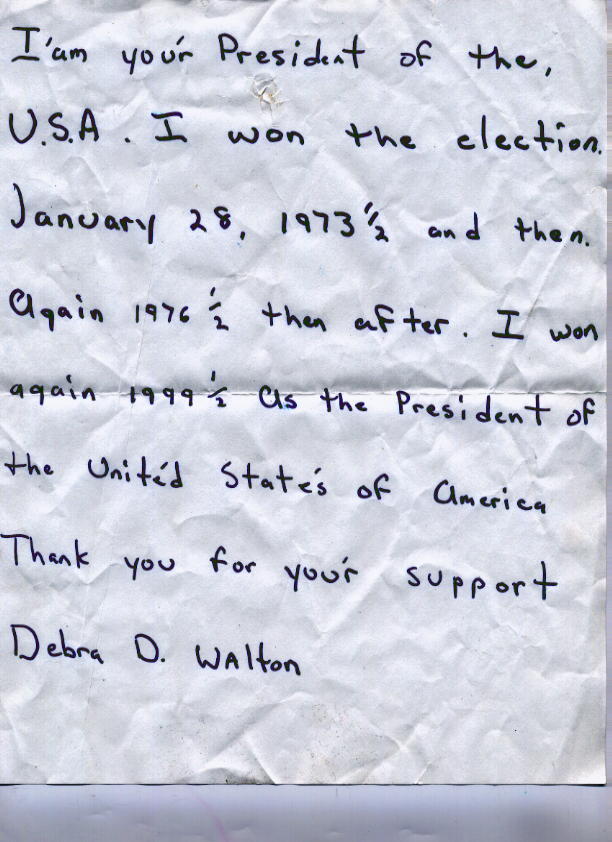 I'am you'r President of the,
U.S.A. I won the election.
January 28, 1973 1/2 and then.
Again 1976 1/2 then after. I won
again 1999 1/2 as the President of
the Unite'd State's of America
Thank you for you'r support
Debra D. WAlton